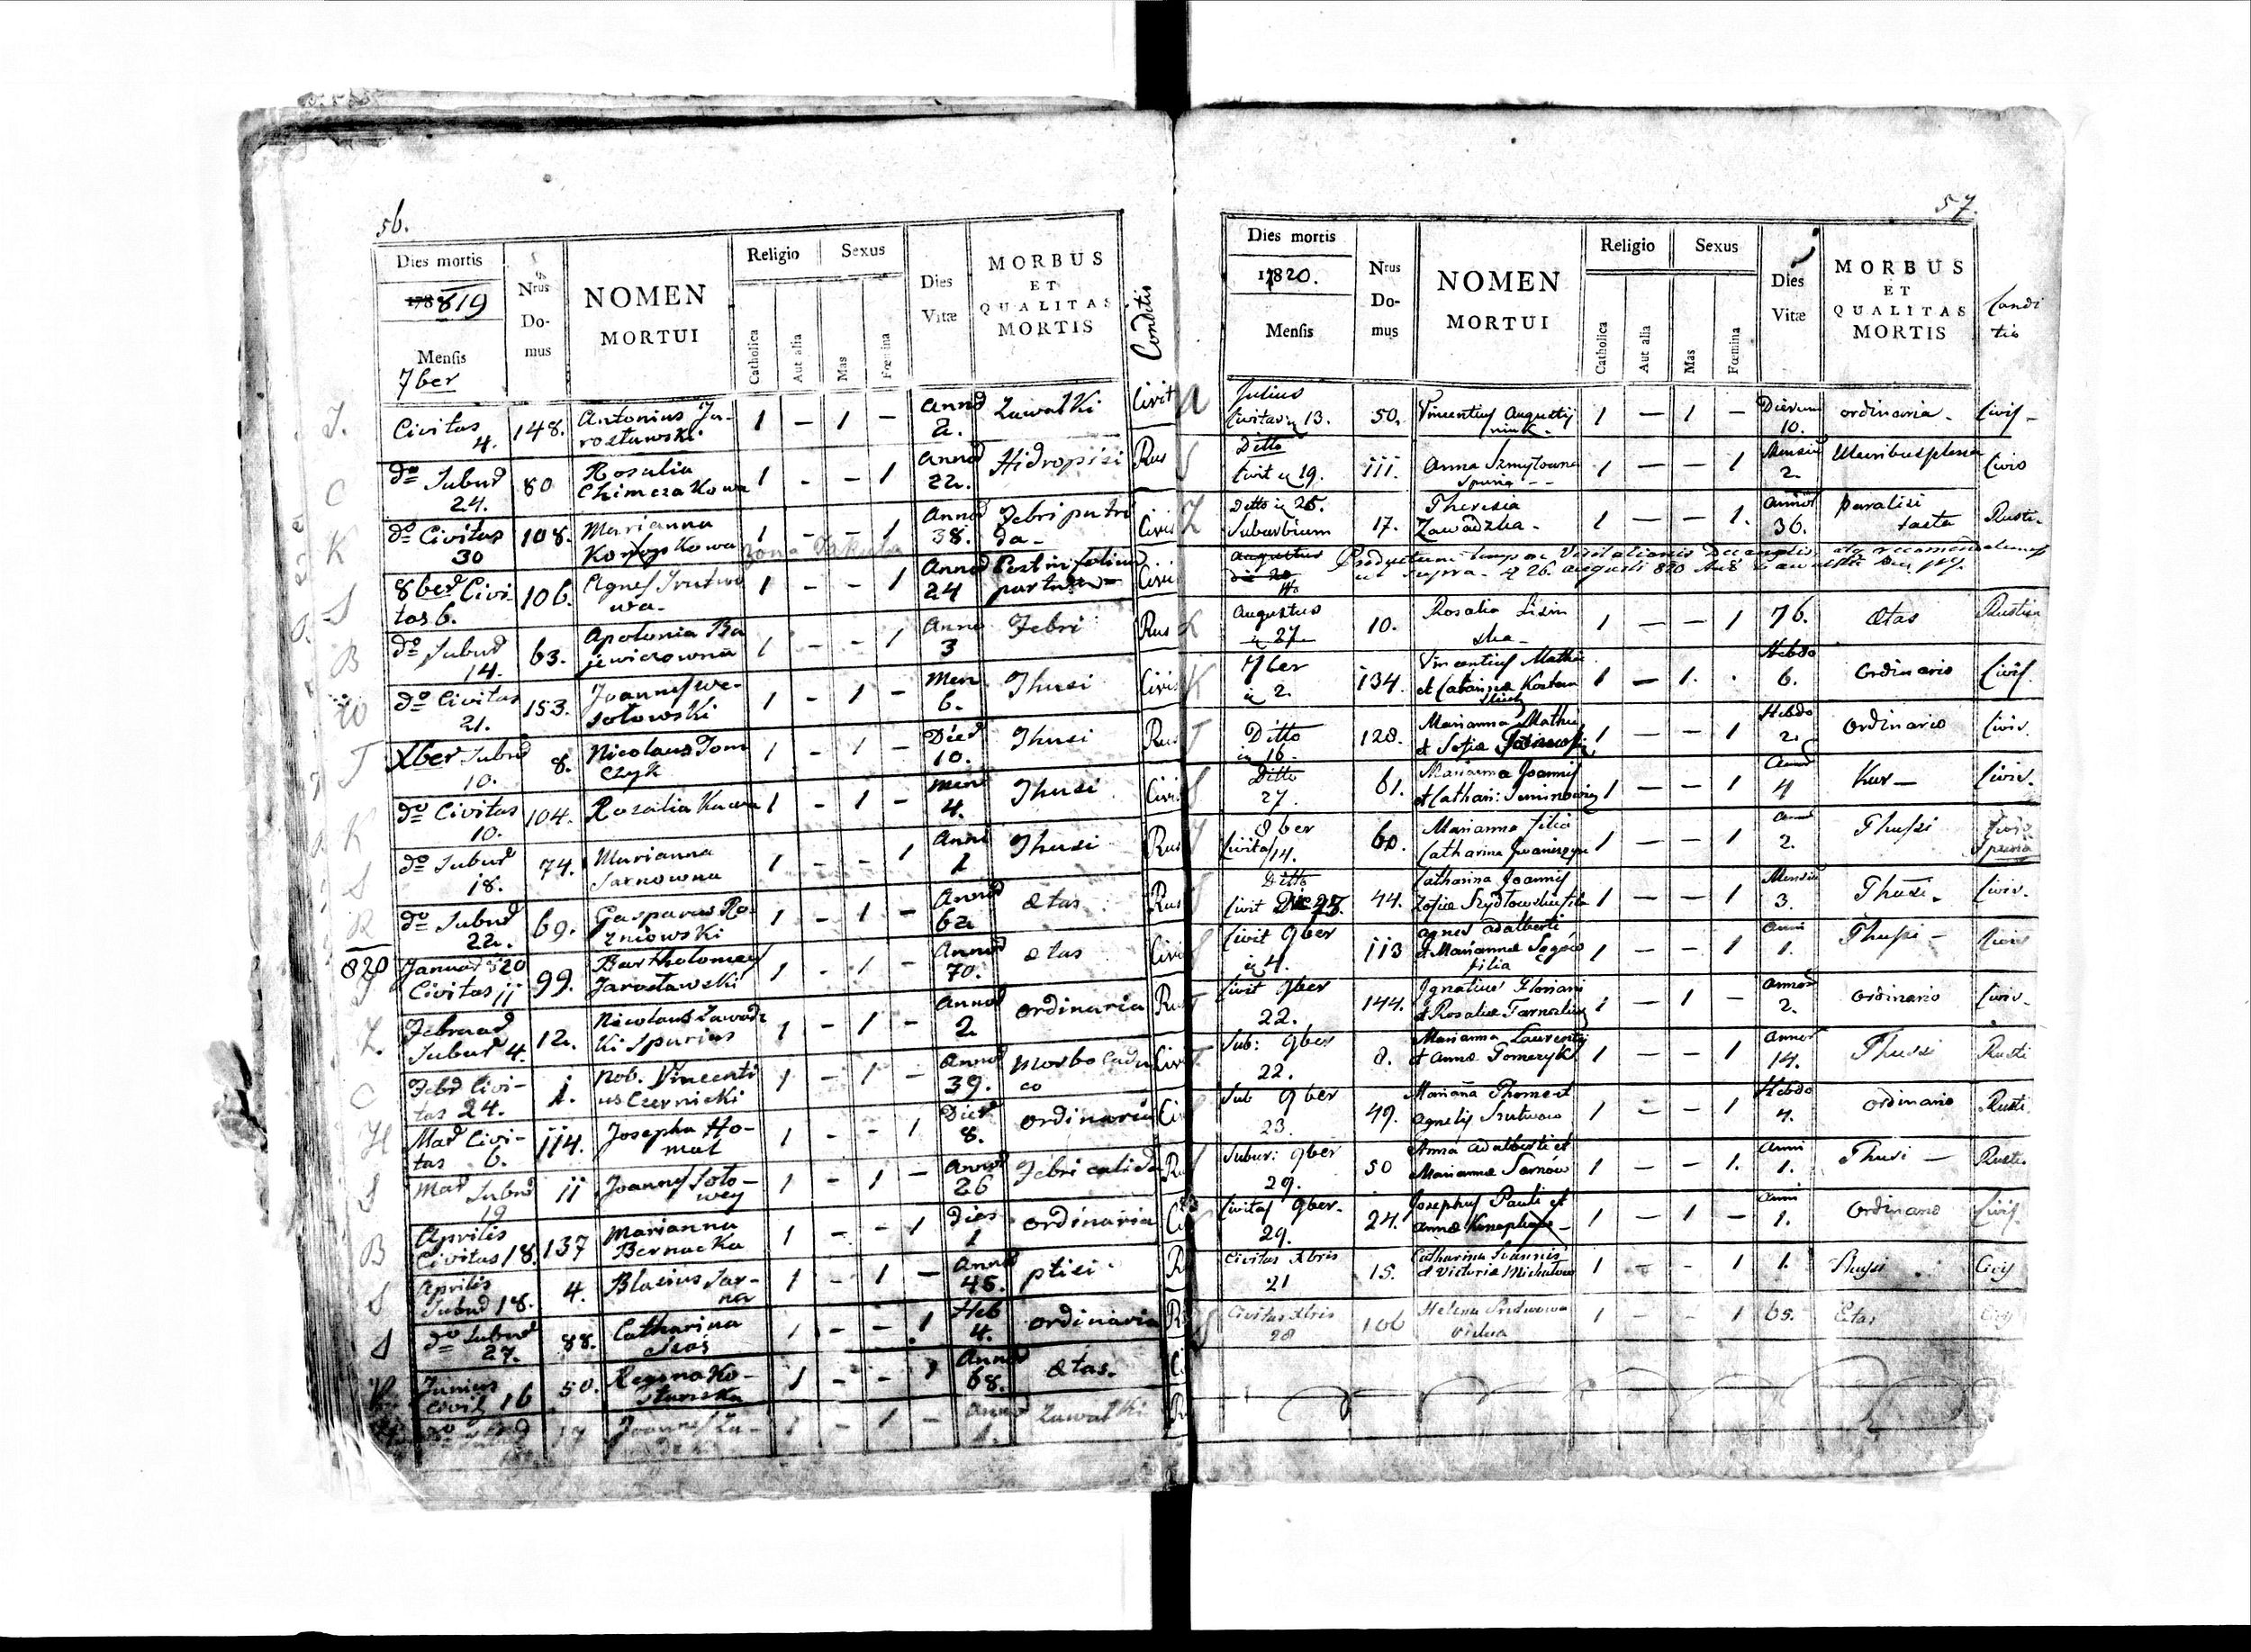 56.
Dies mortis
1788819
Mensis
7ber
Nrus
Do-
mus
NOMEN
MORTUI
Religio
Sexus
Catholica
Aut alia
Mas
Fœmina
Dies
Vitæ
MORBUS
ET
QUALITAS
MORTIS
Conditis
J. Civitas 4. 148. Antonius Ja-rosławski 1 - 1 - Annos 2. Zawałki Civit
C do Suburb 24. 80 Rosalia Chimczakowa 1 - - 1 Annos 22. Hidropisi Rus
K do Civitas 30 108. Marianna 1 - - 1 Annos 38. Febri putri da- Civis
żona
S 8ber Civi-tas 6. 106. Agnes 1 - - 1 Annos 24 Post infelicem partum Civi
B do Suburb 14. 63. Apolonia Ba jewiczowna 1 - - 1 Anno 3 Febri Rus
W do Civitas 21. 153. Joannes We-sołowski 1 - 1 - Men 6. Thusi Civis
T Xber Suburb 10. 8. Nicolaus Tom czyk 1 - 1 - Dies 10. Thusi Rus
K do Civitas 10. 104. Rozalia Kawa 1 - 1 - Mens 4. Thusi Civi
S do Suburb 18. 74. Marianna Sarnowna 1 - - 1 Anni 1 Thusi Rus
R do Suburb 22. 69. Gasparus Ro-zniowski 1 - 1 - Annos 62 ætas Rus
820
J Januar 820 Civitas ii 99. Bartholomey Jarosławski 1 - 1 - Annos 70. ætas Civi
Z. Februar Suburb 4. 12. Nicolaus Zawadz ki Spurius 1 - 1 - Annos 2 ordinaria Rus
C Febr Civi-tas 24. 1. Nob. Vincenti us Czernicki 1 - 1 - Annos 39. Morbo Cadu co Civi
H Mar Civi-tas 6. 114. Josepha Ho-mat 1 - - 1 Dies 8. ordinaria Ci
S Mar Suburb 19 ii Joannes Soło-wey 1 - 1 - Annos 26 Febri calida Ru
B Aprilis Civitas 18. 137 Marianna Bernacka 1 - - 1 Dies 1 ordinaria Ci
S Aprilis Suburb 18. 4. Blasius Sar-na 1 - 1 - Annos 45. ptisi R
S do Suburb 27. 88. Catharina 1 - - 1 Heb 4. ordinaria R
K Junius Civit 16 50. Regina Ko- 1 - - 1 Annos 68. ætas. Ci
17 Joannes Za- 1 - 1 - Zawałki R
57.
Dies mortis
17820.
Mensis
Nrus
Do-
mus
NOMEN
MORTUI
Religio
Sexus
Catholica
Aut alia
Mas
Fœmina
Dies
Vitæ
MORBUS
ET
QUALITAS
MORTIS
Condi
tio
Julius Civitas 13. 50. Vincentius Augusty niuk. 1 - 1 - Dierum 10. ordinaria. Civis
S Ditto Civit 19. 111. Anna Szmytowna Spuria -- 1 - - 1 Mensis 2. Civis
Z Ditto 25. Suburbium 17. Theresia Zawadzka - 1 - - 1. Annos 36. paralisi tacta Rusti.
Augustus Productum tempore Visitationis Decanalis
ut supra. 26. Augusti 820
L Augustus 27. 10. Rosalia Lisin ska 1 - - 1 76. Ætas Rustica
K 7ber 2. 134. Vincentius Mathei et 1 - 1. . Hebdo 6. Ordinario Civis
J Ditto 16. 128. Marianna Mathei et Sofia 1 - - 1 Hebdo 2. Ordinario Civis.
S Ditto 27. 81. Marianna Joannis et Cathari: 1 - - 1 Annos 4 Kur - Civis.
J 8ber Civitas 14. 60. Marianna filia Catharina 1 - - 1 Anno 2. Thussi Civis Spuria
S Ditto Civit 25. 44. Catharina Joannis Zofia Szydłowska filia 1 - - 1 Mensis 3. Thusi. Civis.
Civit 9ber 4. 113 Agnes Adalberti et Marianna filia 1 - - 1 Anni 1. Thussi - Civis
T Civit 9ber 22. 144. Ignatius Floriani et Rosalia 1 - 1 - Annos 2. Ordinario Civis.
T Sub: 9ber 22. 8. Marianna Laurenty et Anna Tomczyk 1 - - 1 Annos 14. Thussi Rusti
Sub 9ber 23. 49. Mariana Thome et Agnetis 1 - - 1 Hebdo 4. ordinario Rusti.
S Subur: 9ber 29. 50 Anna Adalberti et Marianna Sarnow 1 - - 1. Anni 1. Thusi - Rusti.
Civitas 9ber. 29. 24. Josephus Pauli et Anna 1 - 1 - Anni 1. Ordinario Civis.
Civitas Xbris 21 15. Catharina Joannis et Victoria 1 - - 1 1. Thusi . Civis
Civitas Xbris 28 106 Helena vidua 1 - - 1 65. Etas Civis